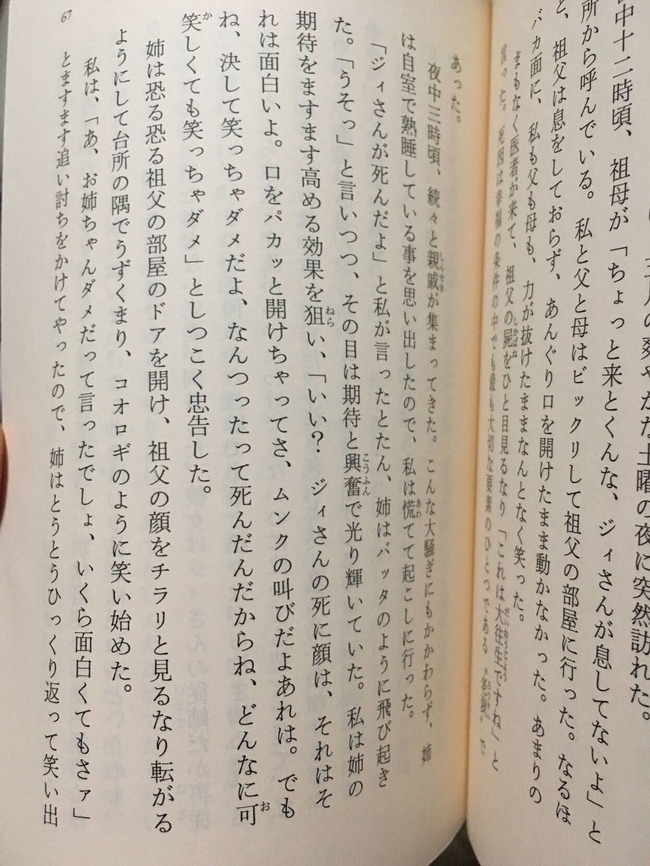 五月の爽やかな土曜の夜に突然訪れた。
中十二時頃、祖母が「ちょっと来とくんな、ジィさんが息してないよ」と
所から呼んでいる。私と父と母はビックリして祖父の部屋に行った。なるほ
と、祖父は息をしておらず、あんぐり口を開けたまま動かなかった。あまりの
バカ面に、私も父も母も、力が抜けたままなんとなく笑った。
まもなく医者が来て、祖父の屍をひと目見るなり「これは大往生ですね」と
言った。死因は幸福の条件の中でも最も大切な要素のひとつである
で
あった。
夜中三時頃、続々と親戚が集まってきた。こんな大騒ぎにもかかわらず、姉
は自室で熟睡している事を思い出したので、私は慌てて起こしに行った。
「ジィさんが死んだよ」と私が言ったとたん、姉はバッタのように飛び起き
た。「うそっ」と言いつつ、その目は期待と興奮で光り輝いていた。私は姉の
期待をますます高める効果を狙い、「いい？ ジィさんの死に顔は、それはそ
れは面白いよ。口をパカッと開けちゃってさ、ムンクの叫びだよあれは。でも
ね、決して笑っちゃダメだよ、なんつったって死んだんだからね、どんなに可
笑しくても笑っちゃダメ」としつこく忠告した。
姉は恐る恐る祖父の部屋のドアを開け、祖父の顔をチラリと見るなり転がる
ようにして台所の隅でうずくまり、コオロギのように笑い始めた。
私は、「あ、お姉ちゃんダメだって言ったでしょ、いくら面白くてもさァ」
とますます追い討ちをかけてやったので、姉はとうとうひっくり返って笑い出
67